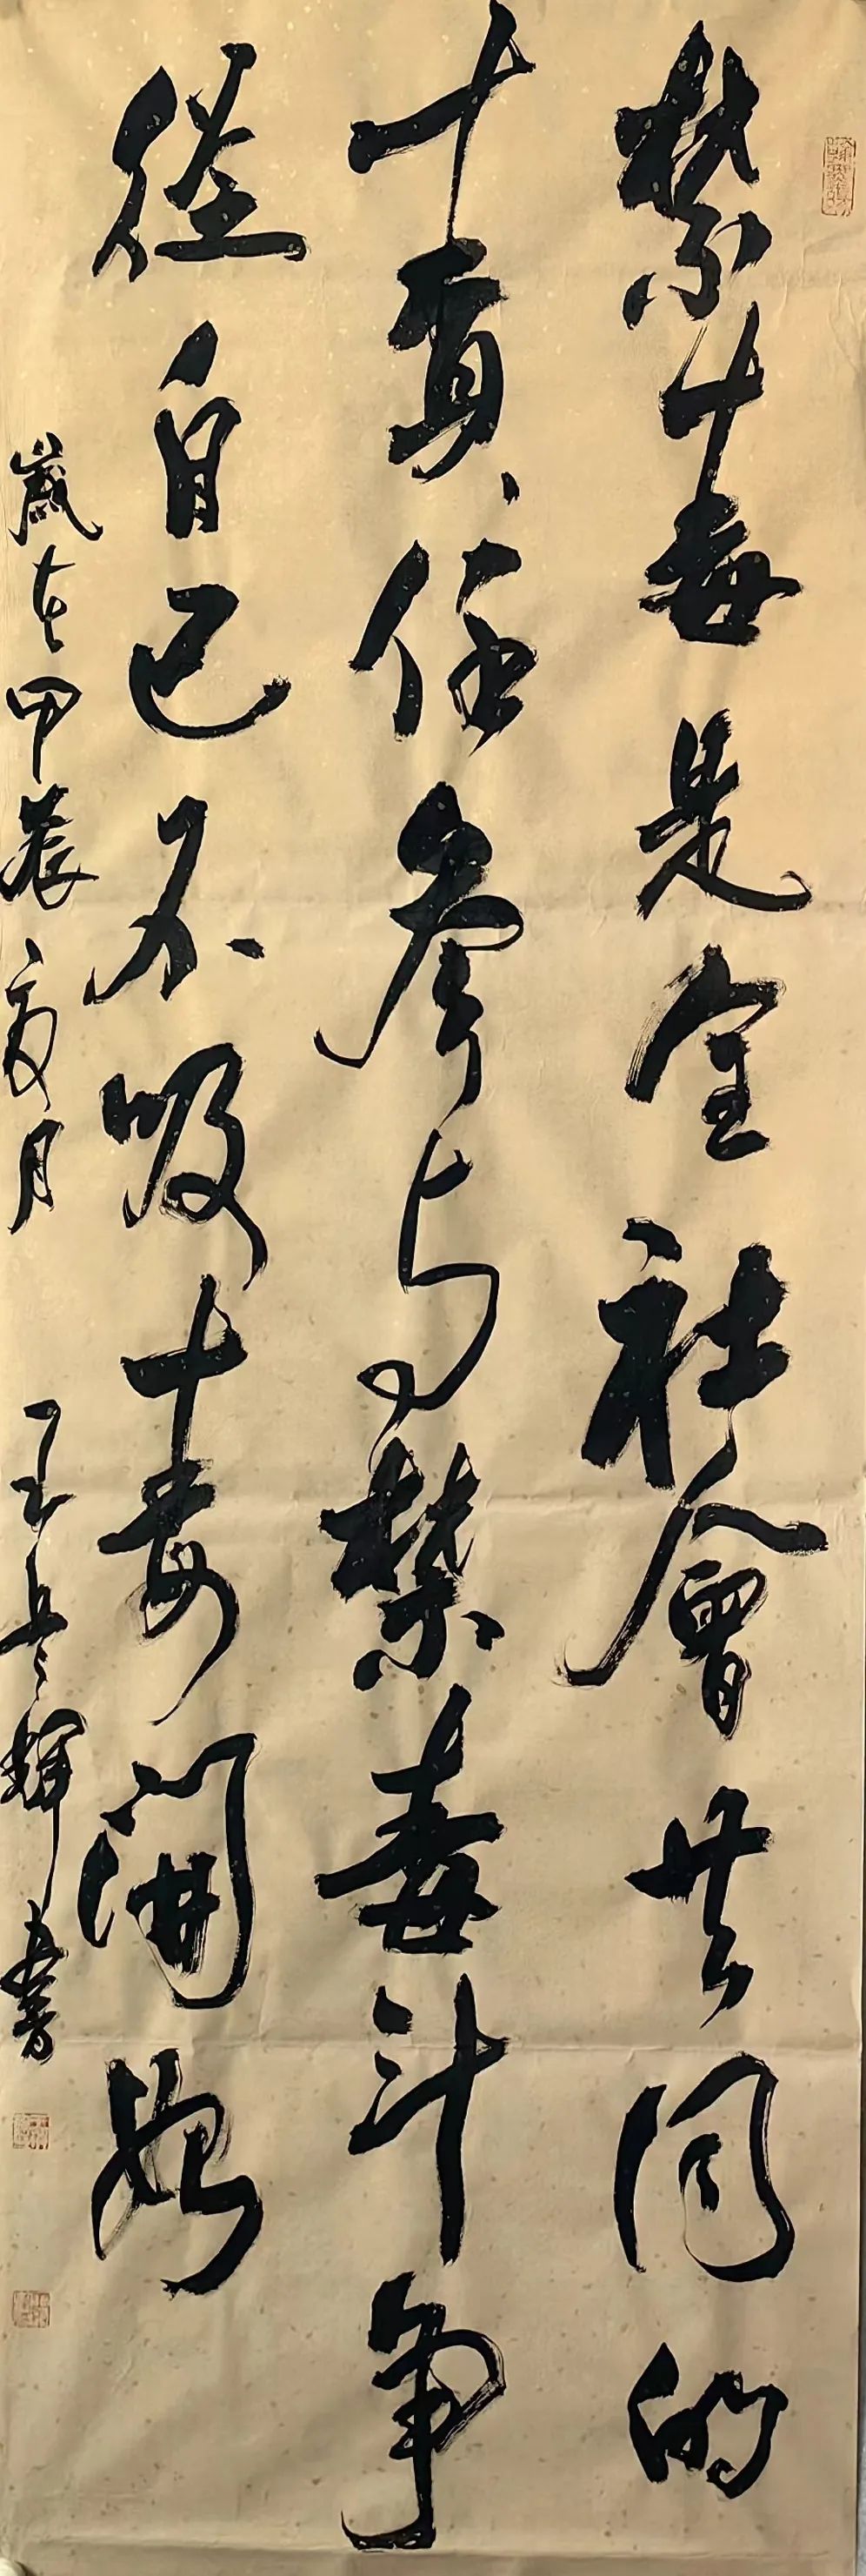 禁毒是全社會共同的
責任參与禁毒斗争
從自己不吸毒開始
歲在甲辰夏月 王兵輝書